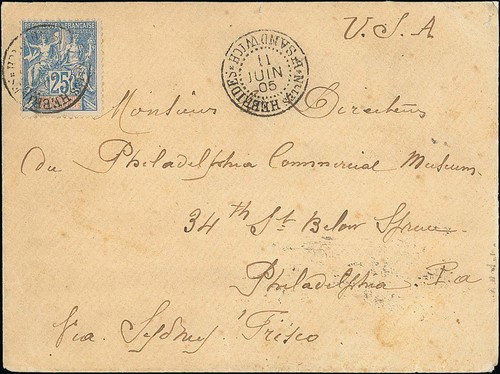 U.S.A
RÉPUBLIQUE FRANÇAISE
POSTES
25
Nles HEBRIDES
Pt SANDWICH
11
JUIN
05
Monsieur Directeur
du Philadelphia Commercial Museum
34th St Below Spruce
Philadelphia. Pa
Via. Sydney 'Frisco